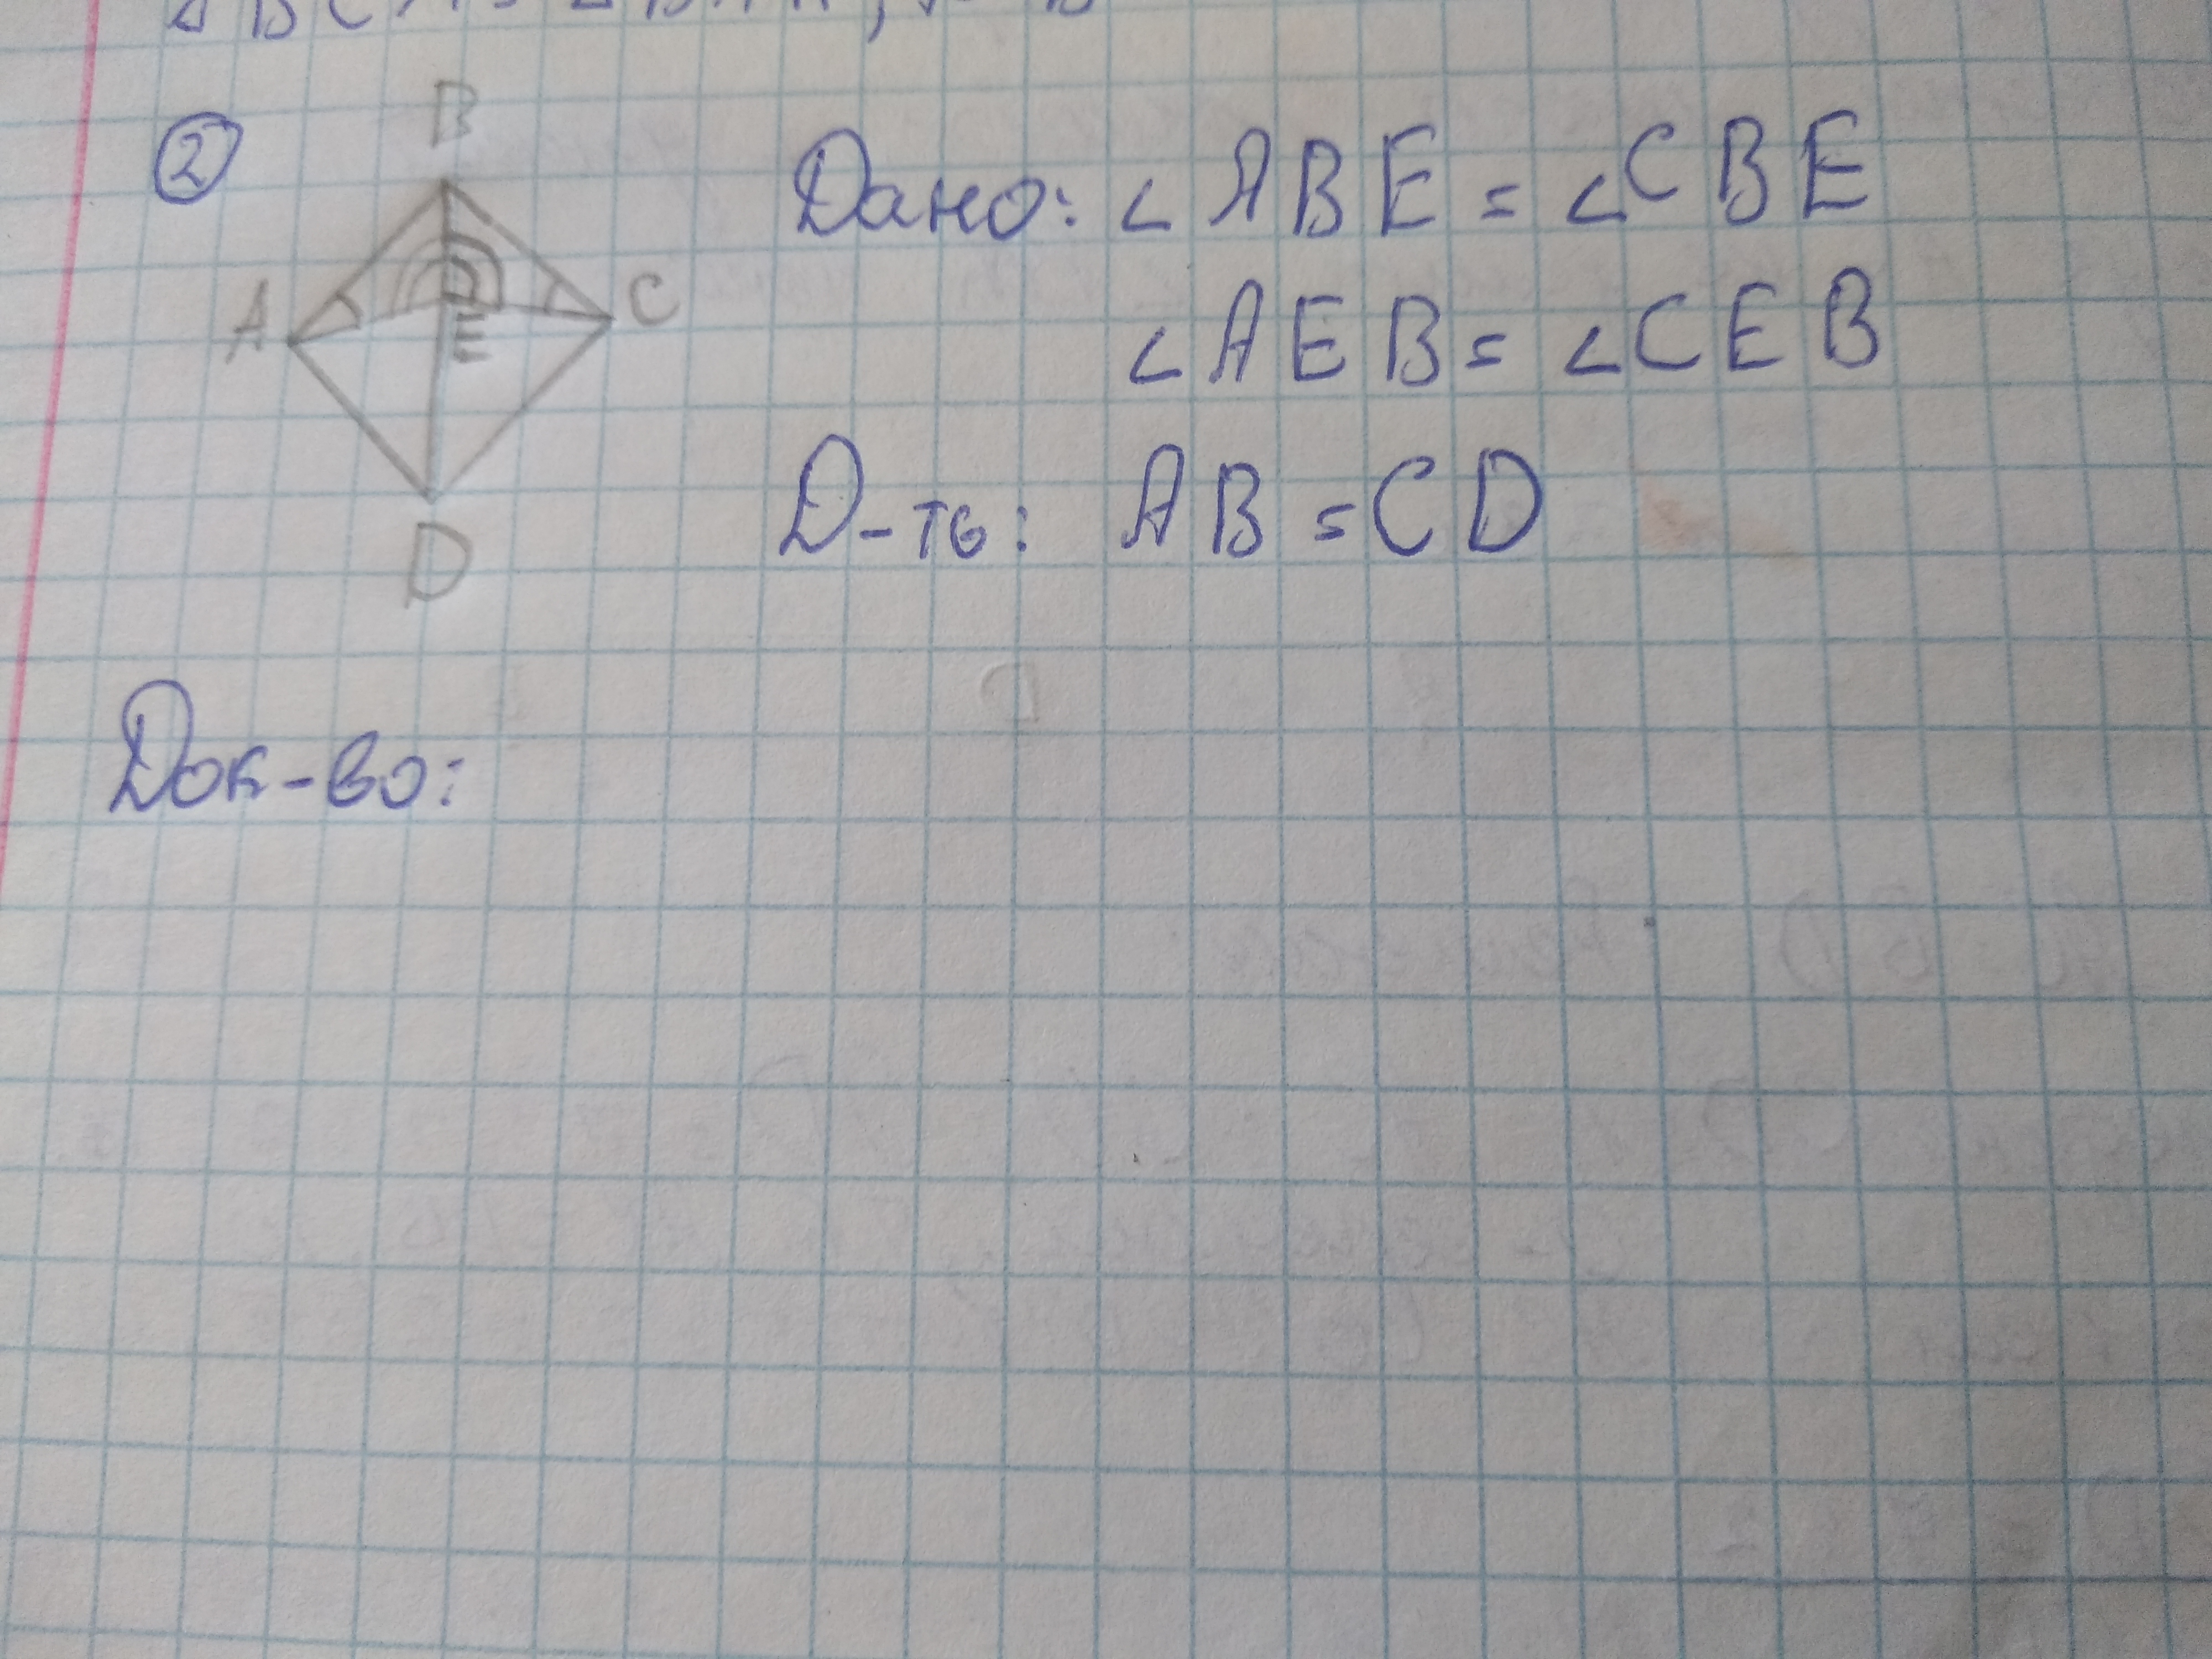 ②
B
A
C
E
D
Дано: ∠ABE = ∠CBE
∠AEB = ∠CEB
D-ть: AB = CD
Док-во: